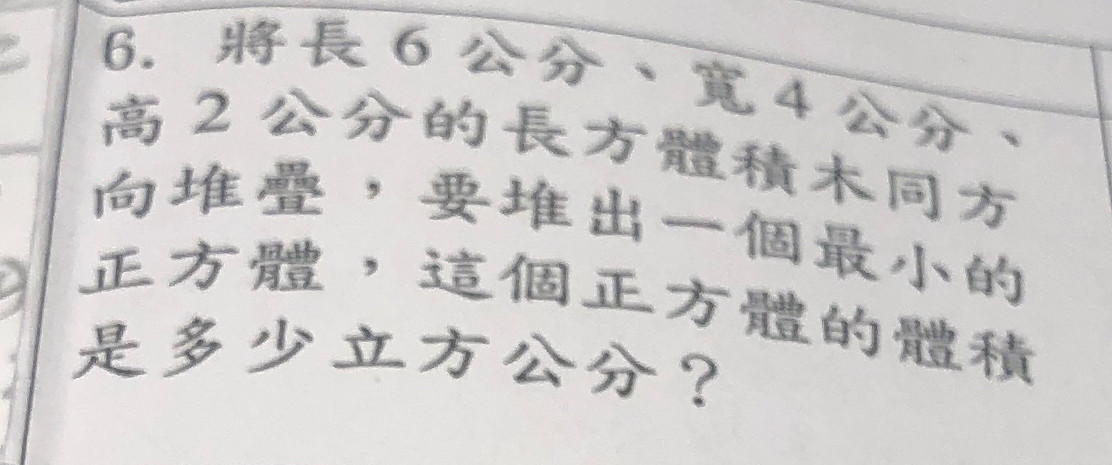 6. 將長6公分、寬4公分、
高2公分的長方體積木同方
向堆疊，要堆出一個最小的
正方體，這個正方體的體積
是多少立方公分？